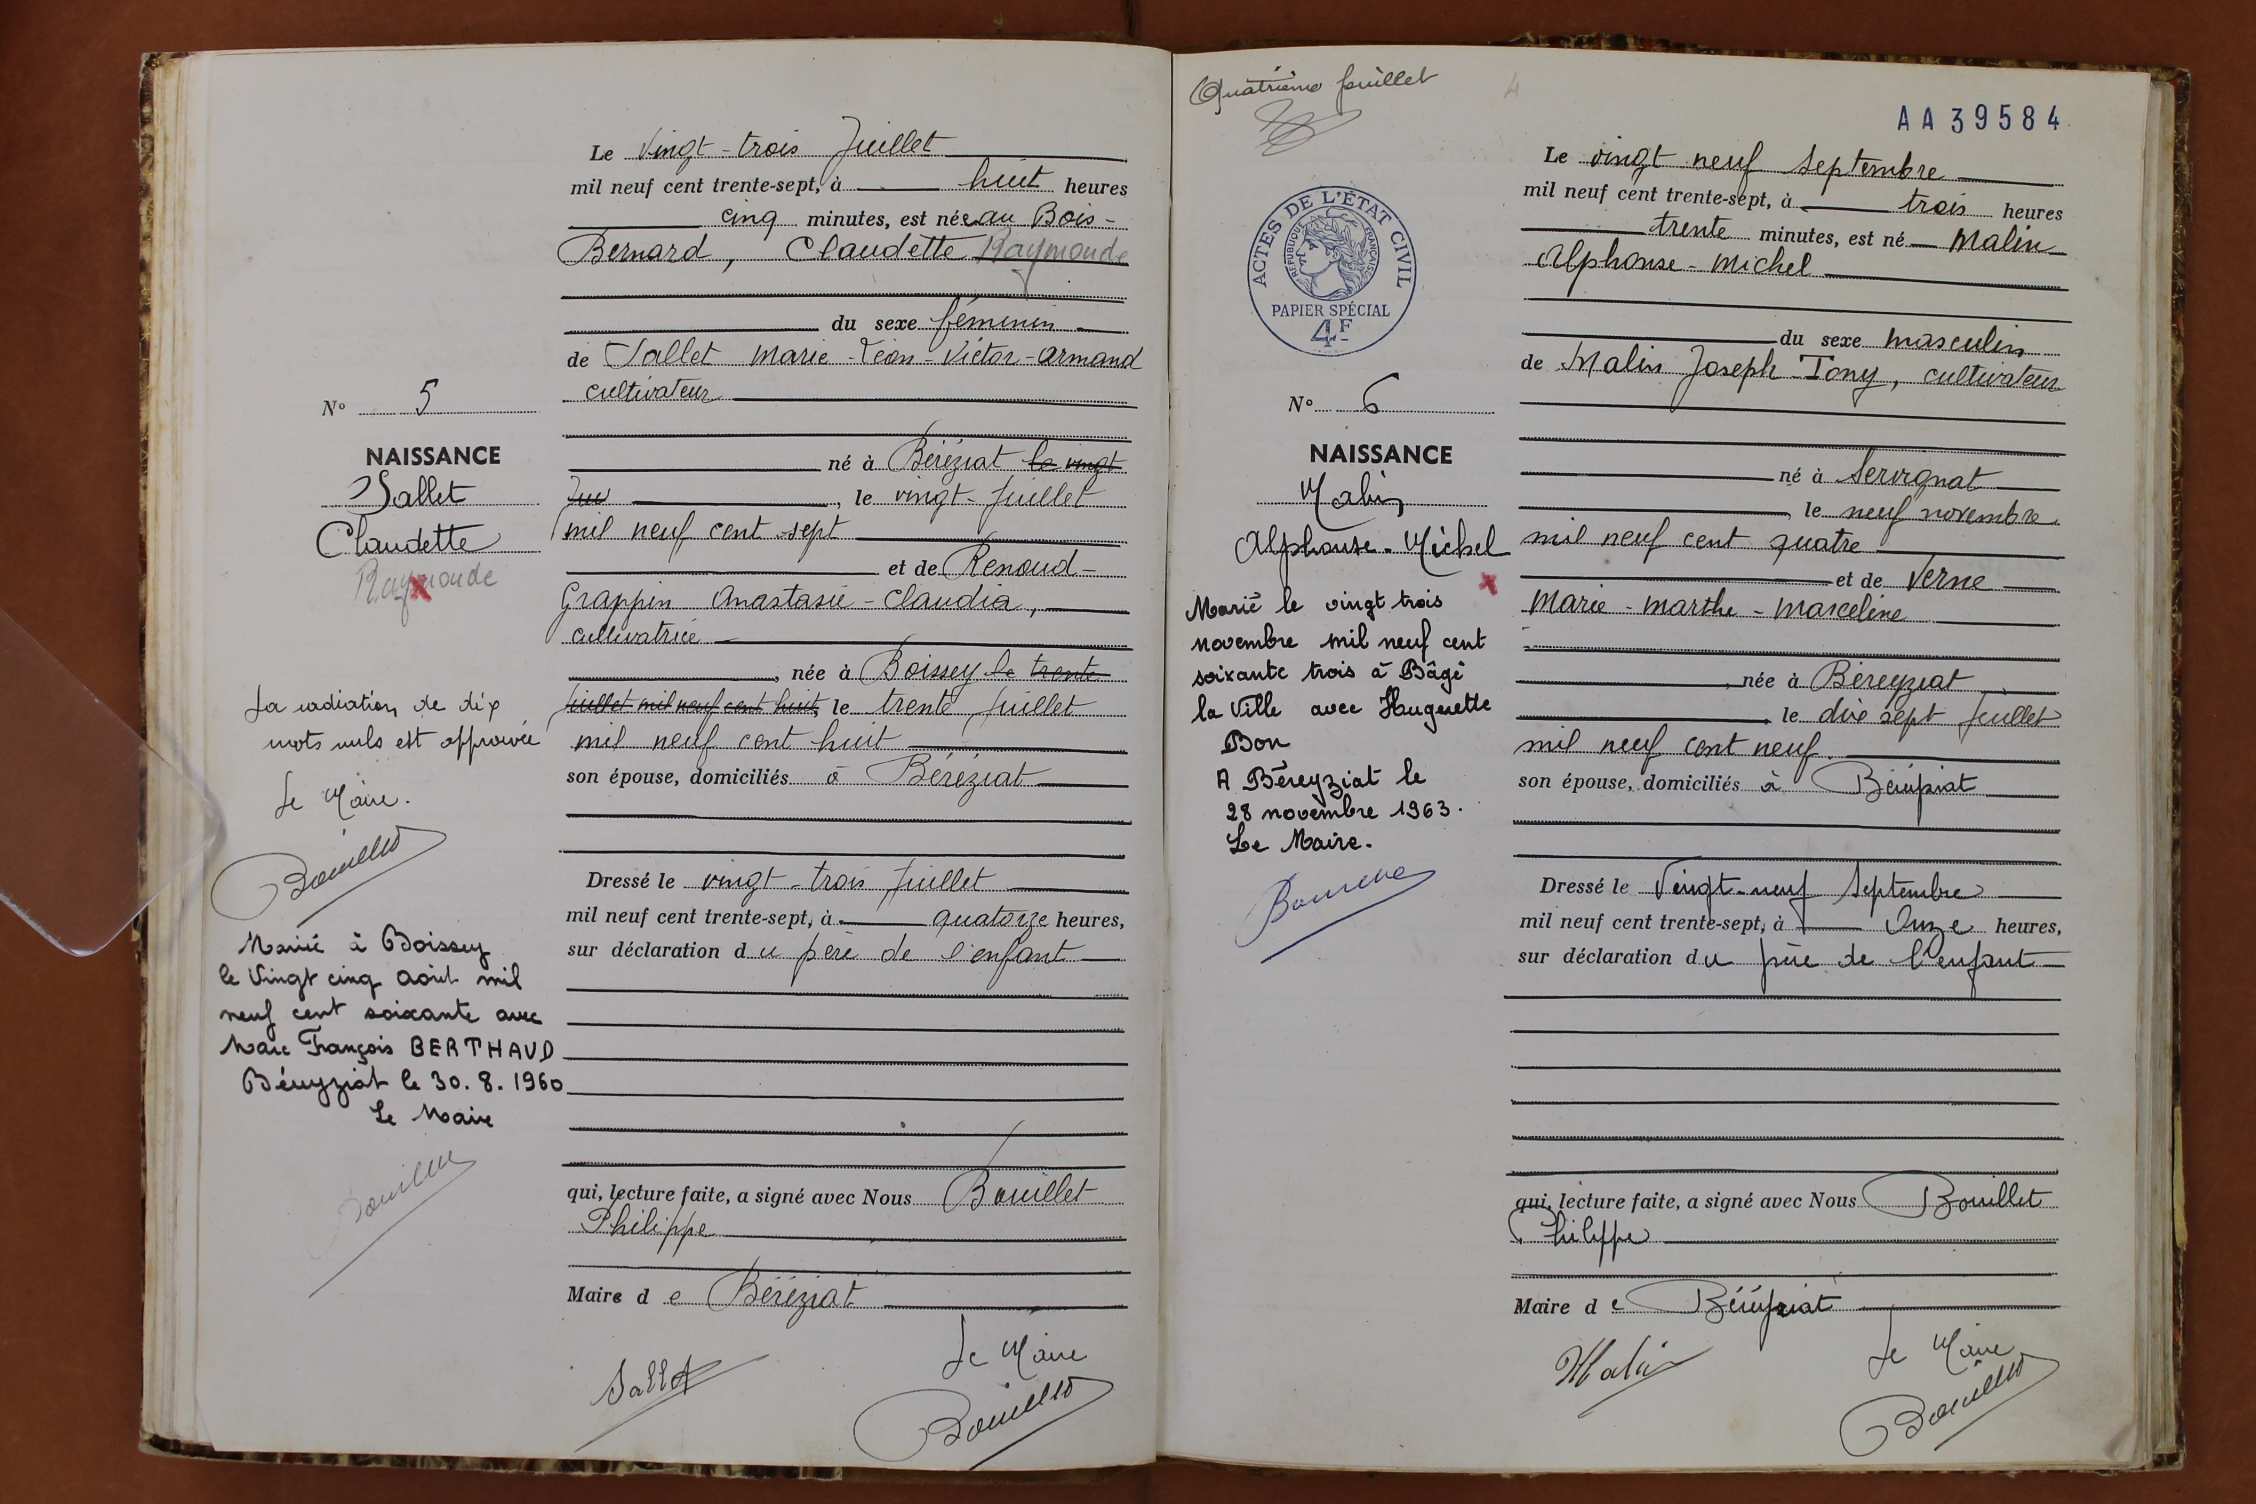 Le vingt-trois Juillet
mil neuf cent trente-sept, à huit heures
cinq minutes, est née au Bois-
Bernard, Claudette Raymonde
du sexe féminin
de Sallet Marie-Léon-Victor-Armand
cultivateur
N° 5
NAISSANCE
Sallet
Claudette
Raymonde
né à Béréziat le vingt
Jui , le vingt-Juillet
mil neuf cent sept
et de Renoud-
Grappin Anastasie-Claudia,
cultivatrice
, née à Boissey le trente
juillet mil neuf cent huit, le trente Juillet
mil neuf cent huit
son épouse, domiciliés à Béréziat
La radiation de dix
mots nuls est approuvée
Le Maire.
Bouillet
Dressé le vingt-trois Juillet
mil neuf cent trente-sept, à quatorze heures,
sur déclaration du père de l'enfant
Marié à Boissey
le Vingt cinq Août mil
neuf cent soixante avec
Marc François BERTHAUD
Béreyziat le 30.8.1960
Le Maire
Bouillet
qui, lecture faite, a signé avec Nous Bouillet
Philippe
Maire de Béréziat
Le Maire
Sallet
Bouillet
Quatrième feuillet
4
AA39584
ACTES DE L'ÉTAT CIVIL
RÉPUBLIQUE FRANÇAISE
PAPIER SPÉCIAL
4F
Le vingt neuf Septembre
mil neuf cent trente-sept, à trois heures
trente minutes, est né Malin
Alphonse-Michel
du sexe masculin
de Malin Joseph-Tony, cultivateur
N° 6
NAISSANCE
Malin
Alphonse-Michel
né à Servignat
le neuf novembre
mil neuf cent quatre
et de Verne
Marie-Marthe-Marceline
née à Béreyziat
le dix sept Juillet
mil neuf cent neuf
son épouse, domiciliés à Béreyziat
Marié le vingt trois
novembre mil neuf cent
soixante trois à Bâgé
la Ville avec Huguette
Bon
A Béreyziat le
28 novembre 1963.
Le Maire.
Dressé le Vingt-neuf Septembre
mil neuf cent trente-sept, à Onze heures,
sur déclaration du père de l'enfant
qui, lecture faite, a signé avec Nous Bouillet
Philippe
Maire de Béreyziat
Le Maire
Malin
Bouillet